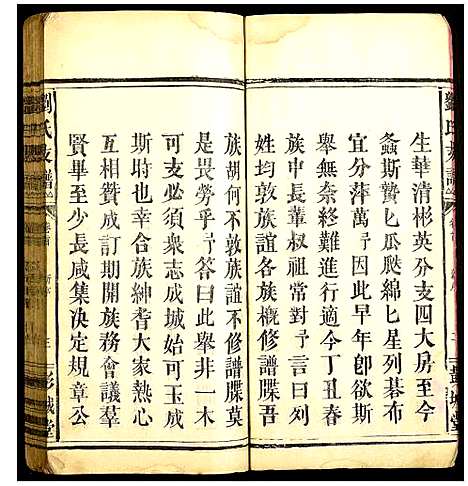 生華清彬英分支四大房至今
螽斯蟄匕瓜瓞綿匕星列碁布
宜分萍萬氏因此早年卽欲斯
舉無奈終難進行今丁丑春
族中長輩叔祖常對予言凡
姓均敦族誼各族概修譜牒吾
族胡何不敦族誼不修譜牒莫
是畏勞乎予答曰此舉非一木
可支必須衆志成城始可玉成
斯時遂合族紳耆大家熱心
互相贊成訂期開族務會議羣
賢畢至少長咸集決定規章公
劉氏支譜
彭城堂
彭城堂